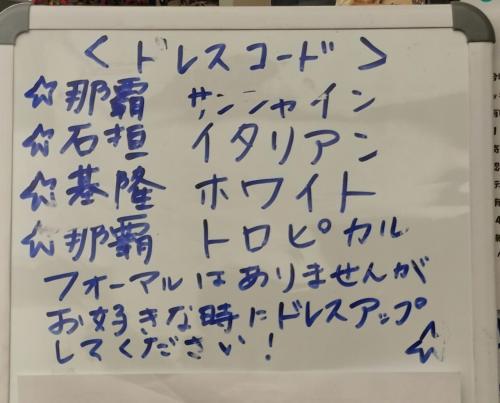 <ドレスコード>
☆那覇 サンシャイン
☆石垣 イタリアン
☆基隆 ホワイト
☆那覇 トロピカル
フォーマルはありませんが
お好きな時にドレスアップ
してください! ☆